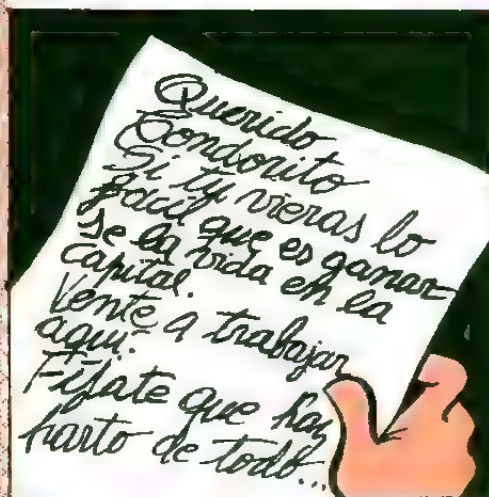 Querido
Condorito
Si tu vieras lo
fácil que es ganar
se la vida en la
capital.
Vente a trabajar
aquí.
Fíjate que hay
harto de todo...